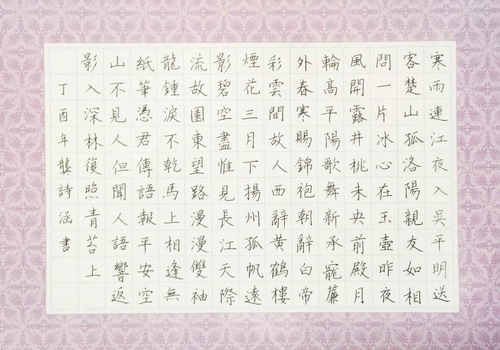 寒雨連江夜入吳平明送
客楚山孤洛陽親友如相
問一片冰心在玉壺昨夜
風開露井桃未央前殿月
輪高平陽歌舞新承寵簾
外春寒賜錦袍朝辭白帝
彩雲間故人西辭黃鶴樓
煙花三月下揚州孤帆遠
影碧空盡惟見長江天際
流故園東望路漫漫雙袖
龍鍾淚不乾馬上相逢無
紙筆憑君傳語報平安空
山不見人但聞人語響返
影入深林復照青苔上
丁酉年龔詩涵書